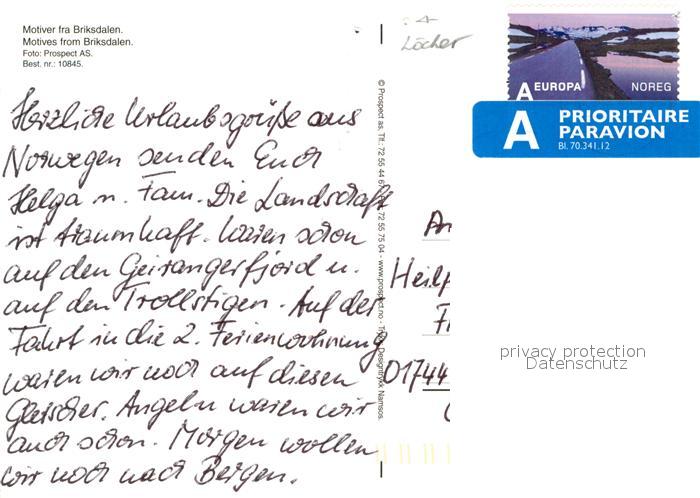 Motiver fra Briksdalen.
Motives from Briksdalen.
Foto: Prospect AS.
Best. nr.: 10845.
Löcher
A EUROPA NOREG
A PRIORITAIRE
PARAVION
Bl. 70.341.12
Herzliche Urlaubsgrüße aus
Norwegen senden Euch
Helga u. Fam. Die Landschaft
ist traumhaft. Waren schon
auf den Geirangerfjord u.
auf den Trollstigen. Auf der
Fahrt in die 2. Ferienwohnung
waren wir noch auf diesen
Gletscher. Angeln waren wir
auch schon. Morgen wollen
wir noch nach Bergen.
© Prospect as, Tlf.: 72 55 44 72 55 75 04 - www.prospect.no - Designtrykk Namsos.
An
Heilp
01744
privacy protection
Datenschutz